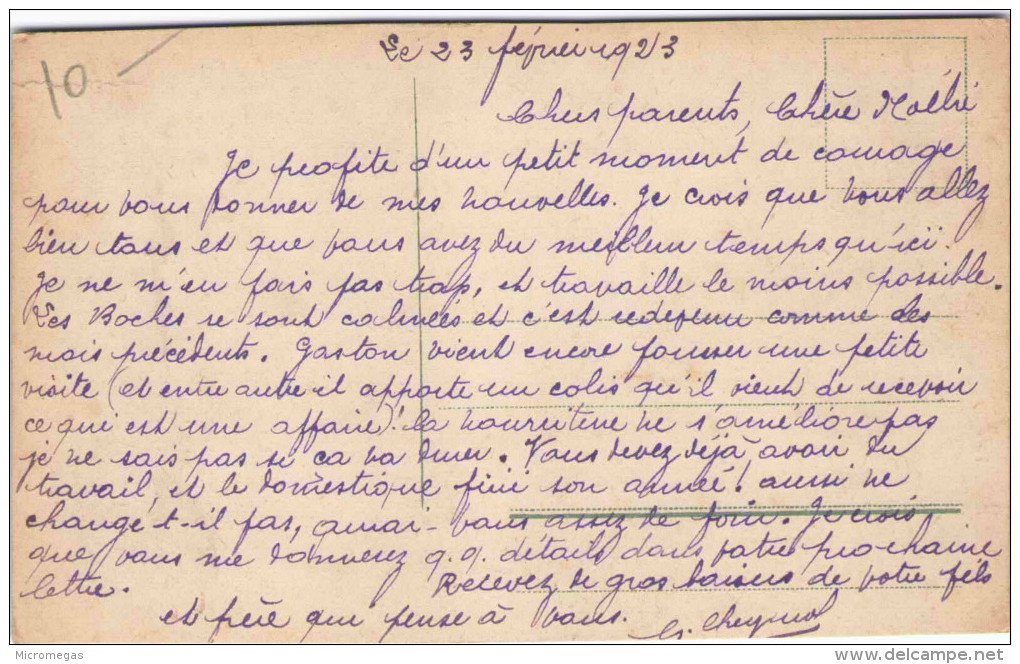 10 -
Le 23 février 1923
Chers parents, Chère
Je profite d'un petit moment de courage
pour vous donner de mes nouvelles. Je crois que vous allez
bien tous et que vous avez du meilleur temps qu'ici.
Je ne m'en fais pas trop, et travaille le moins possible.
Les Boches se sont calmés et c'est redevenu comme les
mois précédents. Gaston vient encore pousser une petite
visite (et entre autre il apporte un colis qu'il vient de recevoir
ce qui est une affaire)! la nourriture ne s'améliore pas
je ne sais pas si ca va durer. Vous devez déjà avoir du
travail, et le domestique fini son année! aussi ne
change-t-il pas, aurai-vous assez de foin. Je crois
que vous me donnerez q.q. détails dans votre prochaine
lettre. Recevez de gros baisers de votre fils
et frère qui pense à vous.
Micromegas
www.delcampe.net